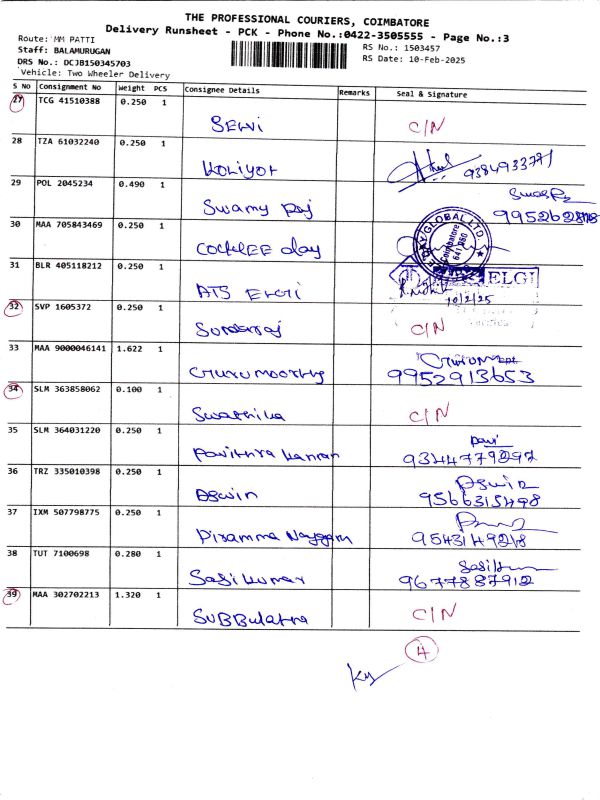 THE PROFESSIONAL COURIERS, COIMBATORE
Delivery Runsheet - PCK - Phone No.:0422-3505555 - Page No.:3
Route: MM PATTI
RS No.: 1503457
Staff: BALAMURUGAN
RS Date: 10-Feb-2025
DRS No.: DCJB150345703
Vehicle: Two Wheeler Delivery
S No Consignment No Weight PCS Consignee Details Remarks Seal & Signature
27 TCG 41510388 0.250 1
Selvi C/N
28 TZA 61032240 0.250 1
Koliyot
29 POL 2045234 0.490 1
Swamy Raj
30 MAA 705843469 0.250 1
31 BLR 405118212 0.250 1
ATS ELGI
ELGI
10/2/25
32 SVP 1605372 0.250 1
Sunderraj C/N
33 MAA 9000046141 1.622 1
Gurumoorthy 9952913653
34 SLM 363858062 0.100 1
Swathika C/N
35 SLM 364031220 0.250 1
Pavithra Kannan 9344779297
36 TRZ 335010398 0.250 1
Aswin Aswin
9566315498
37 IXM 507798775 0.250 1
Piramma Nayagam 9543149218
38 TUT 7100698 0.280 1
Sasikumar 9677887912
39 MAA 302702213 1.320 1
SUBBulatha C/N
4